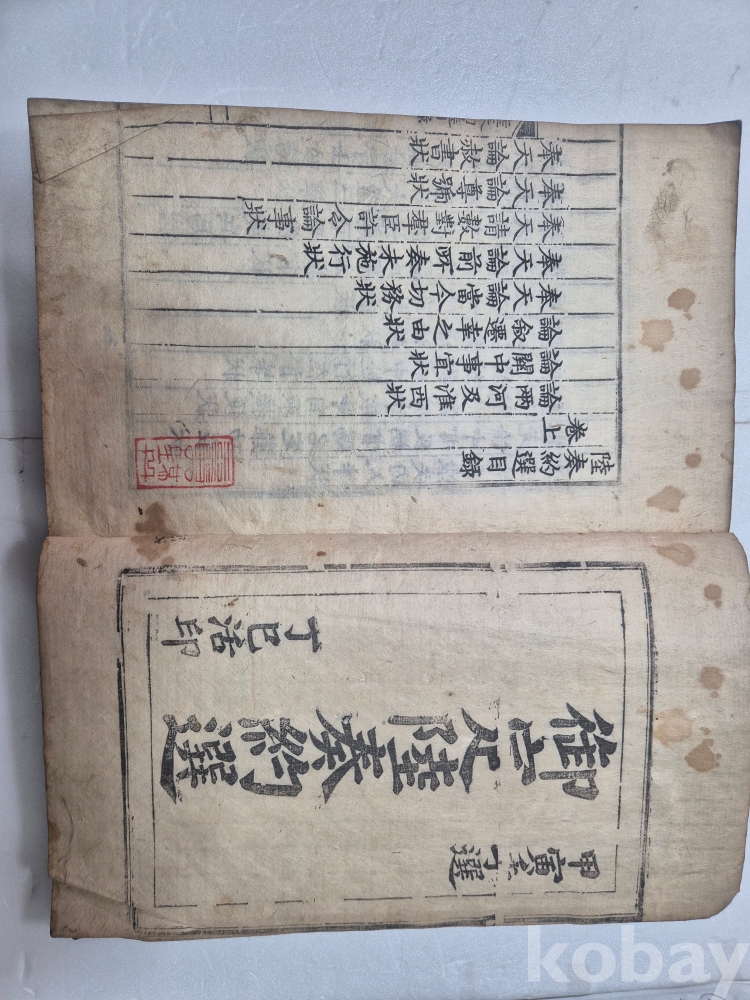 甲寅手選
御定陸奏約選
丁巳活印
陸奏約選目錄
卷上
論兩河及淮西狀
論關中事宜狀
論敘遷幸之由狀
奉天論當今切務狀
奉天論前所奏未施行狀
奉天請數對羣臣許令論事狀
奉天論尊號狀
奉天論赦書狀
kobay